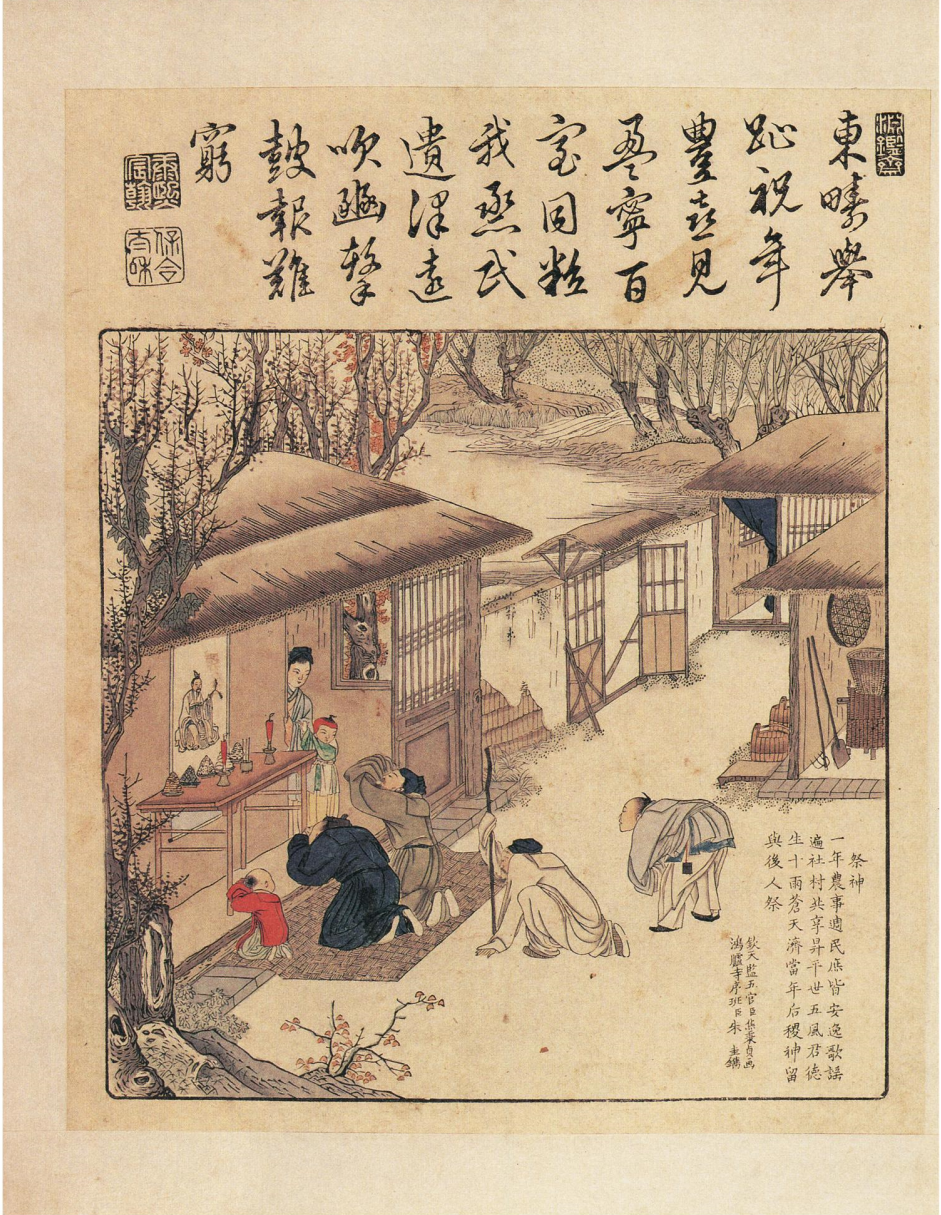 淵鑒齋
東疇舉
趾祝年
豐喜見
盈寧百
室同粒
我烝民
遺澤遠
吹豳擊
鼓報難
窮
康熙
宸翰
保合
太和
祭神
一年農事週民庶皆安逸歌謡
遍社村共享昇平世五風君德
生十雨蒼天濟當年后稷神留
與後人祭
欽天監五官臣焦秉貞画
鴻臚寺序班臣朱圭鐫